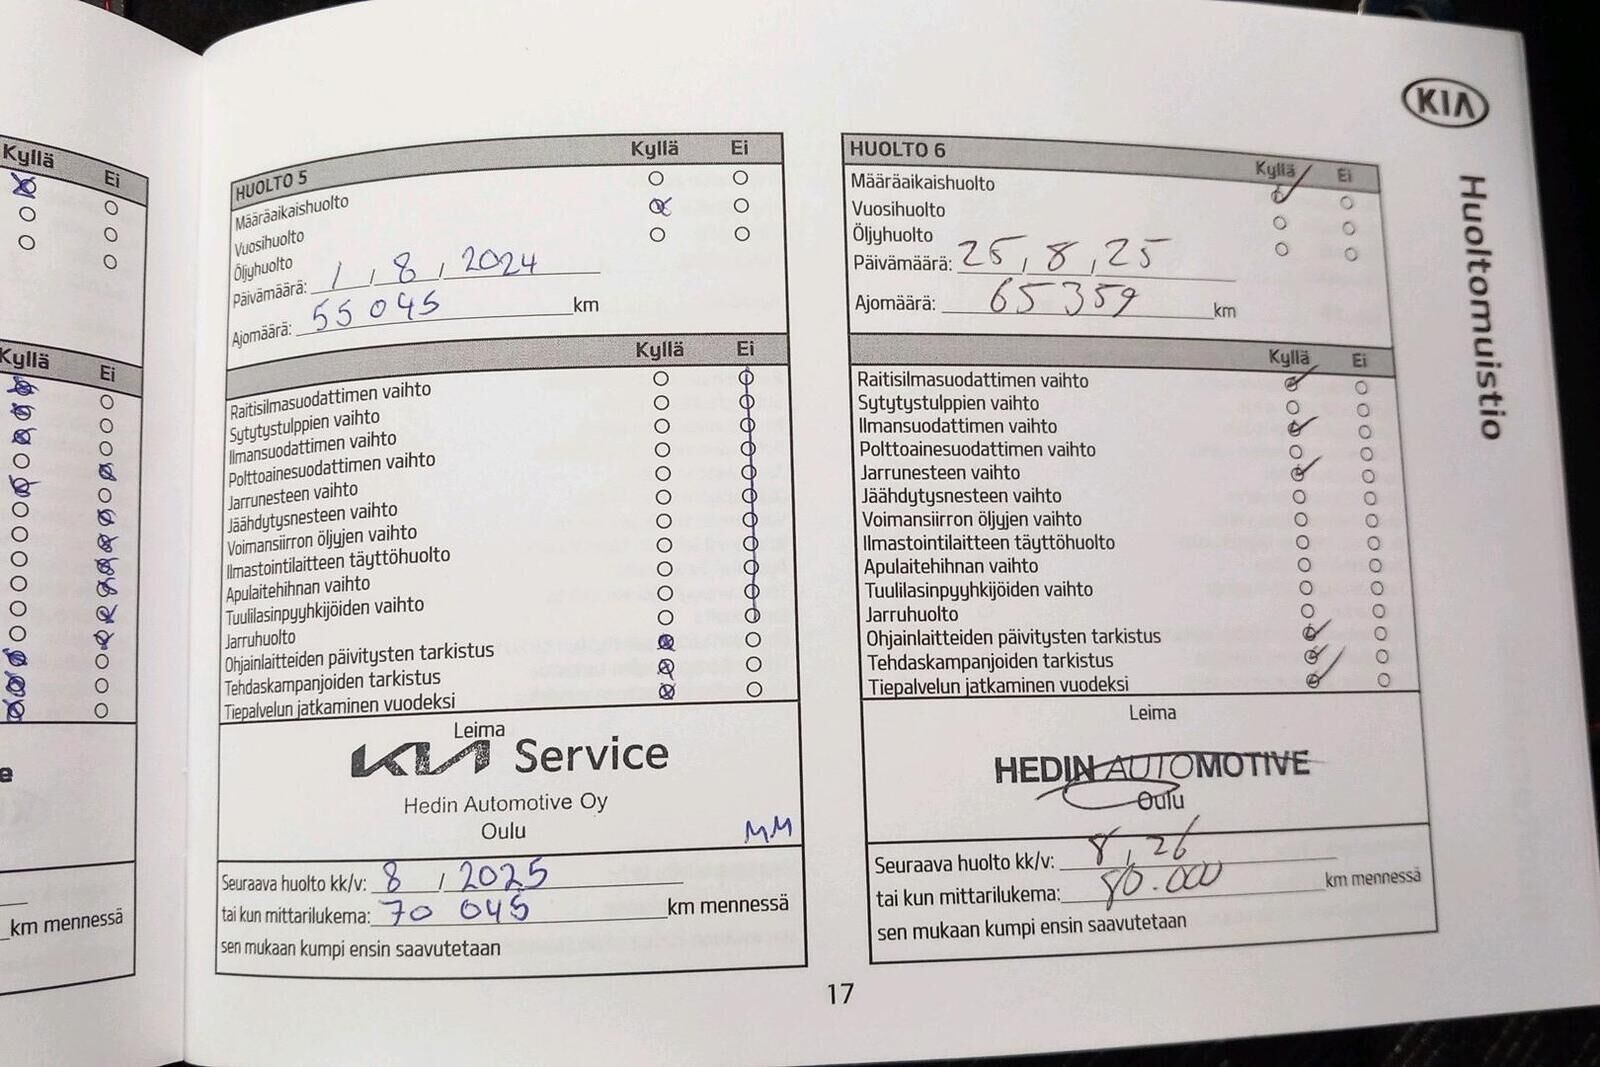 Kyllä Ei
Kyllä Ei
e
km mennessä
HUOLTO 5 Kyllä Ei
Määräaikaishuolto
Vuosihuolto
Öljyhuolto
Päivämäärä: 1 / 8 / 2024
Ajomäärä: 55 045 km
Kyllä Ei
Raitisilmasuodattimen vaihto
Sytytystulppien vaihto
Ilmansuodattimen vaihto
Polttoainesuodattimen vaihto
Jarrunesteen vaihto
Jäähdytysnesteen vaihto
Voimansiirron öljyjen vaihto
Ilmastointilaitteen täyttöhuolto
Apulaitehihnan vaihto
Tuulilasinpyyhkijöiden vaihto
Jarruhuolto
Ohjainlaitteiden päivitysten tarkistus
Tehdaskampanjoiden tarkistus
Tiepalvelun jatkaminen vuodeksi
Leima
KIA Service
Hedin Automotive Oy
Oulu
MM
Seuraava huolto kk/v: 8 / 2025
tai kun mittarilukema: 70 045 km mennessä
sen mukaan kumpi ensin saavutetaan
HUOLTO 6 Kyllä Ei
Määräaikaishuolto
Vuosihuolto
Öljyhuolto
Päivämäärä: 25 , 8 , 25
Ajomäärä: 65359 km
Kyllä Ei
Raitisilmasuodattimen vaihto
Sytytystulppien vaihto
Ilmansuodattimen vaihto
Polttoainesuodattimen vaihto
Jarrunesteen vaihto
Jäähdytysnesteen vaihto
Voimansiirron öljyjen vaihto
Ilmastointilaitteen täyttöhuolto
Apulaitehihnan vaihto
Tuulilasinpyyhkijöiden vaihto
Jarruhuolto
Ohjainlaitteiden päivitysten tarkistus
Tehdaskampanjoiden tarkistus
Tiepalvelun jatkaminen vuodeksi
Leima
HEDIN AUTOMOTIVE
Oulu
Seuraava huolto kk/v: 8 , 26
tai kun mittarilukema: 80.000 km mennessä
sen mukaan kumpi ensin saavutetaan
KIA
Huoltomuistio
17